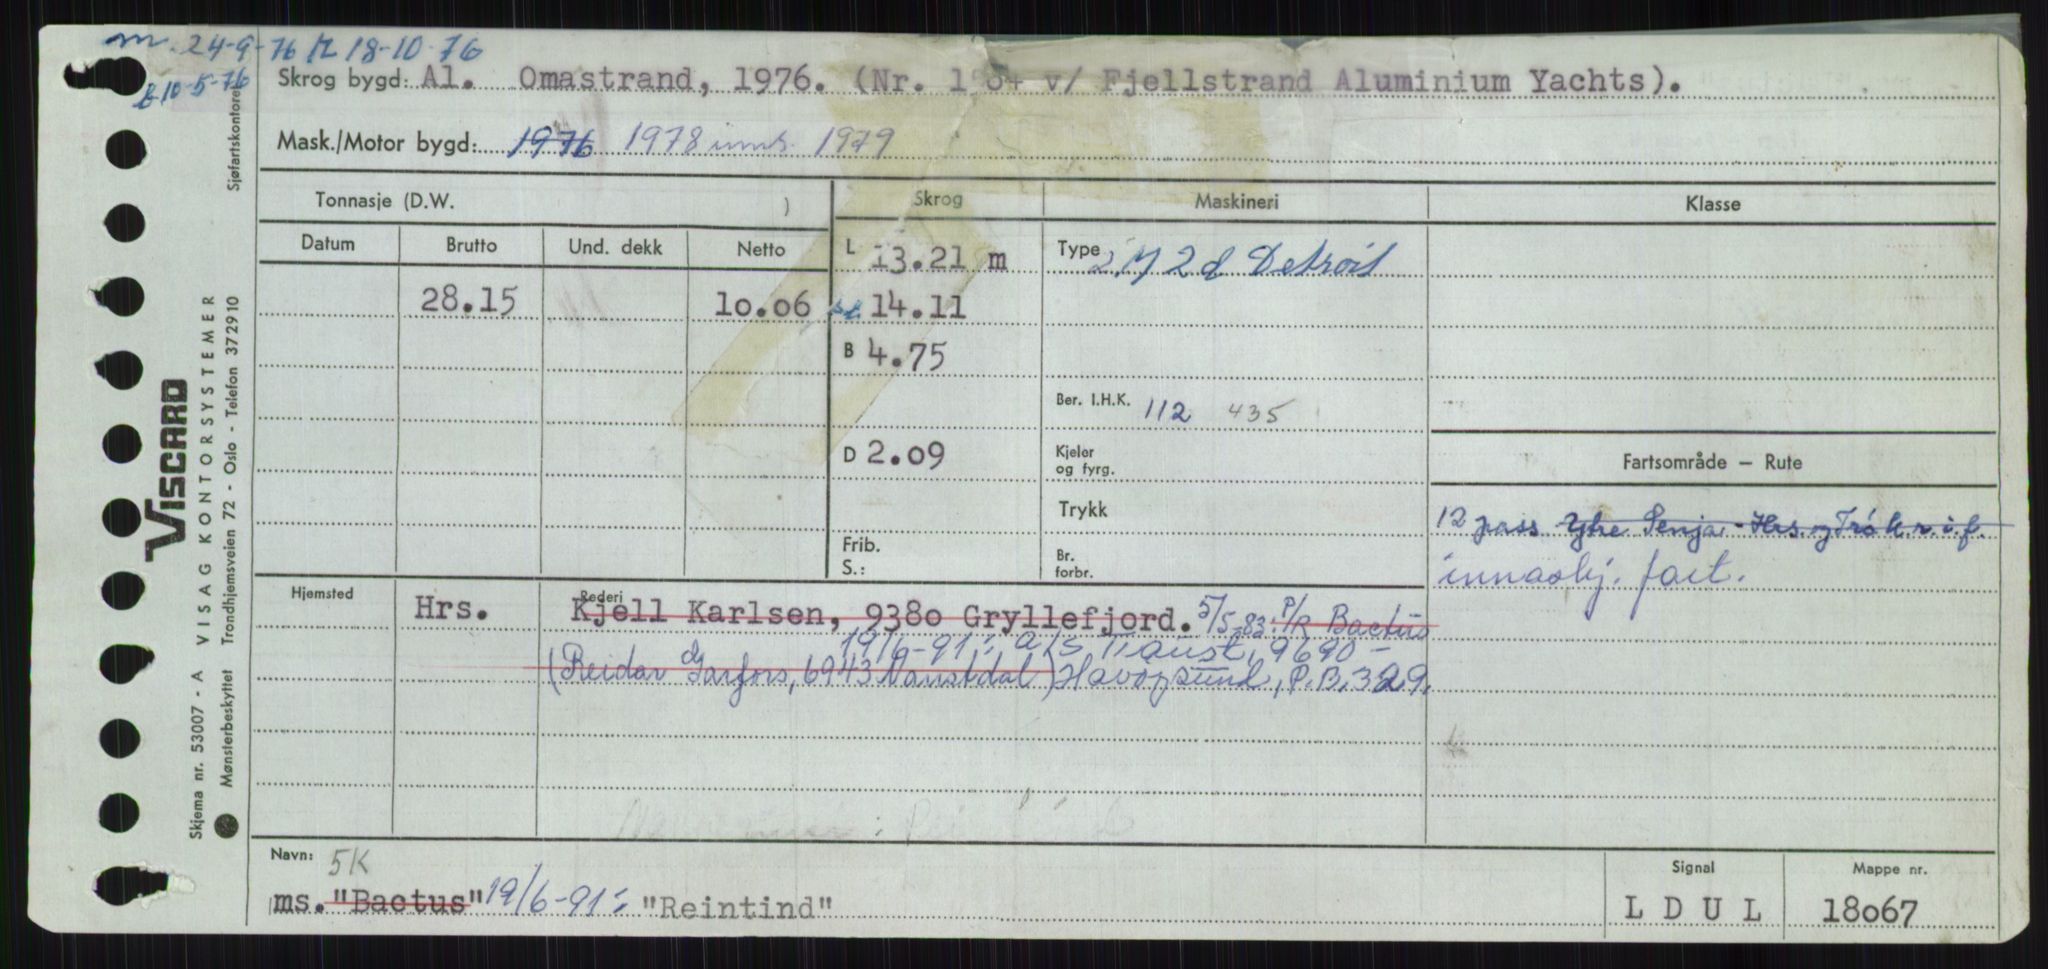 m. 24-9-76 R 18-10-76
10-5-76
Skrog bygd: Al. Omastrand, 1976. (Nr. v/ Fjellstrand Aluminium Yachts).
Mask./Motor bygd: 1976 1978 inns. 1979
Sjøfartskontoret
Tonnasje (D.W. )
Skrog
Maskineri
Klasse
Datum
Brutto
Und. dekk
Netto
L 13.21 m
Type 2 M 2d Detroit
28.15
10.06
14.11
B 4.75
Ber. I.H.K. 112 435
D 2.09
Kjeler
og fyrg.
Fartsområde – Rute
Trykk
12 pass Ytre Senja - Hrs. og Trø k.r.i.f.
Frib.
S.:
Br.
forbr.
innaskj. fart.
Hjemsted
Rederi
Hrs.
Kjell Karlsen, 9380 Gryllefjord. 5/5-83: P/R Bactus
19/6-91: A/S 9690 -
(Reidar Garfors, 6943 Naustdal) Havøysund, P.B. 329.
Navn: 5K
ms. "Bactus" 19/6-91: "Reintind"
Signal
L D U L
Mappe nr.
18067
VISCARD
VISAG KONTORSYSTEMER
Skjema nr. 53007 - A
Mønsterbeskyttet Trondhjemsveien 72 - Oslo - Telefon 372910